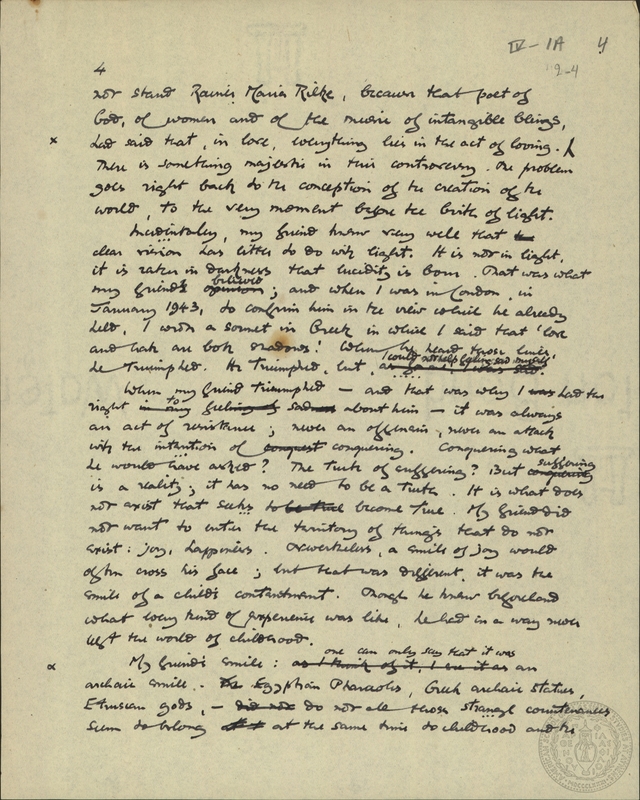 IV - IA 4
2-4
4
not stand Rainer Maria Rilke, because that poet of
God, of women and of the music of intangible things,
x had said that, in love, everything lies in the act of loving.
There is something majestic in this controversy. The problem
goes right back to the conception of the creation of the
world, to the very moment before the birth of light.
Incidentally, my friend knew very well that
clear vision has little to do with light. It is not in light,
it is rather in darkness that lucidity is born. That was what
believed
my friend's opinion; and when I was in London, in
January 1943, to confirm him in the view which he already
held, I wrote a sonnet in Greek in which I said that 'love
and hate are both shadows.' When he heard those lines,
I could not help feeling sad myself
he triumphed. He triumphed, but,
When my friend triumphed — and that was why I was had the
to
right in my feeling of sadness about him — it was always
an act of resistance; never an offensive, never an attack
with the intention of conquest conquering. Conquering what
suffering
he would have asked? The truth of suffering? But conquering
is a reality; it has no need to be a truth. It is what does
not exist that seeks to be true become true. My friend did
not want to enter the territory of things that do not
exist: joy, happiness. Nevertheless, a smile of joy would
often cross his face; but that was different, it was the
smile of a child's contentment. Though he knew beforehand
what every kind of experience was like, he had in a way never
left the world of childhood.
one can only say that it was
My friend's smile: as I think of it, I see it as an
archaic smile. The Egyptian Pharaohs, Greek archaic statues,
Etruscan gods, — did not do not all those strange countenances
seem to belong at the same time to childhood and to